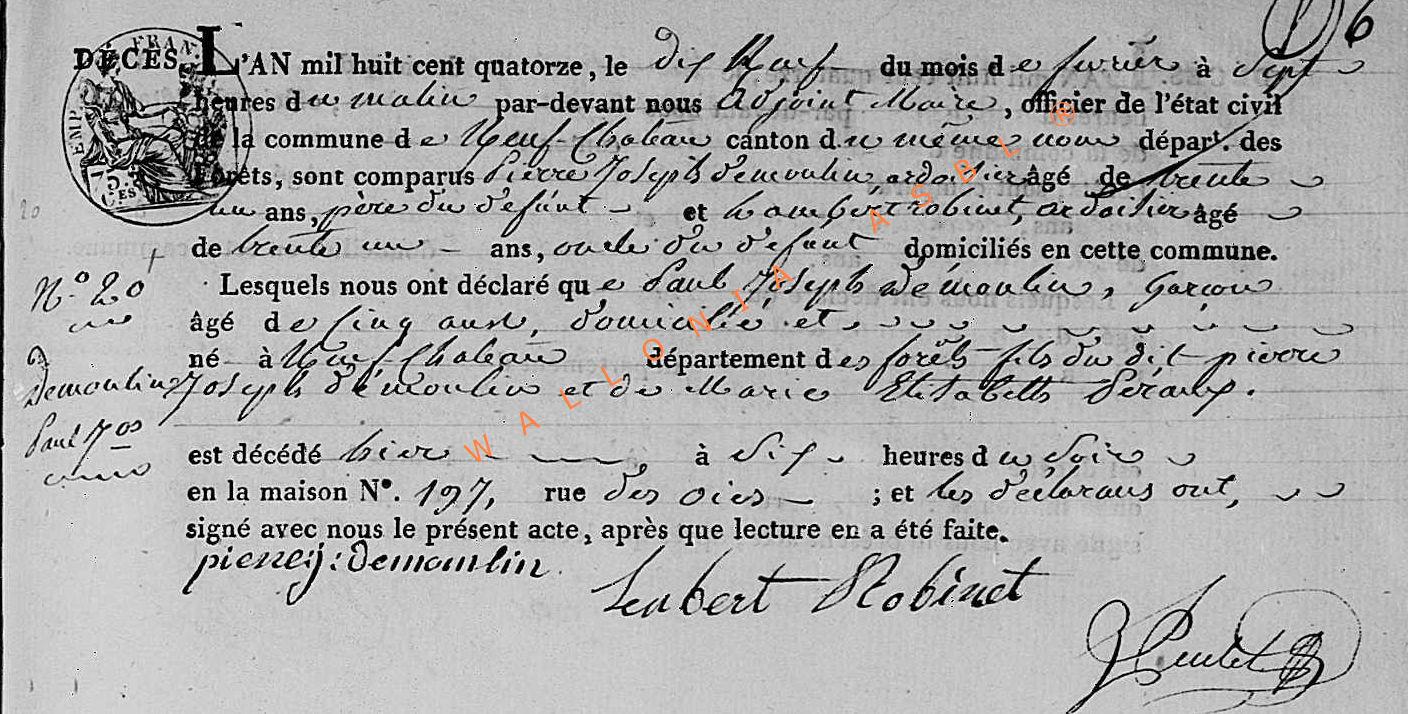 6
DÉCÈS. L'AN mil huit cent quatorze, le dix Neuf du mois de fevrier à Sept
heures du matin par-devant nous adjoint Maire, officier de l'état civil
de la commune de Neuf-Chateau canton du même nom départ. des
Forêts, sont comparus Pierre Joseph Demoulin, ardoisier âgé de trente
un ans, père du défunt et Lambert robinet, ardoisier âgé
de trente un ans, oncle du défunt domiciliés en cette commune.
N.o 20
Lesquels nous ont déclaré que Paul Joseph Demoulin, Garçon
âgé de Cinq ans, domicilié et
né à Neuf Chateau département des forêts fils du dit pierre
Demoulin Joseph demoulin et de Marie Elisabeth
Paul Jos
est décédé hier à Six heures du Soir
en la maison N°. 197, rue des oies ; et les déclarans ont,
signé avec nous le présent acte, après que lecture en a été faite.
pierre j: Demoulin
Lenbert Robinet
WALLONIA ASBL ®